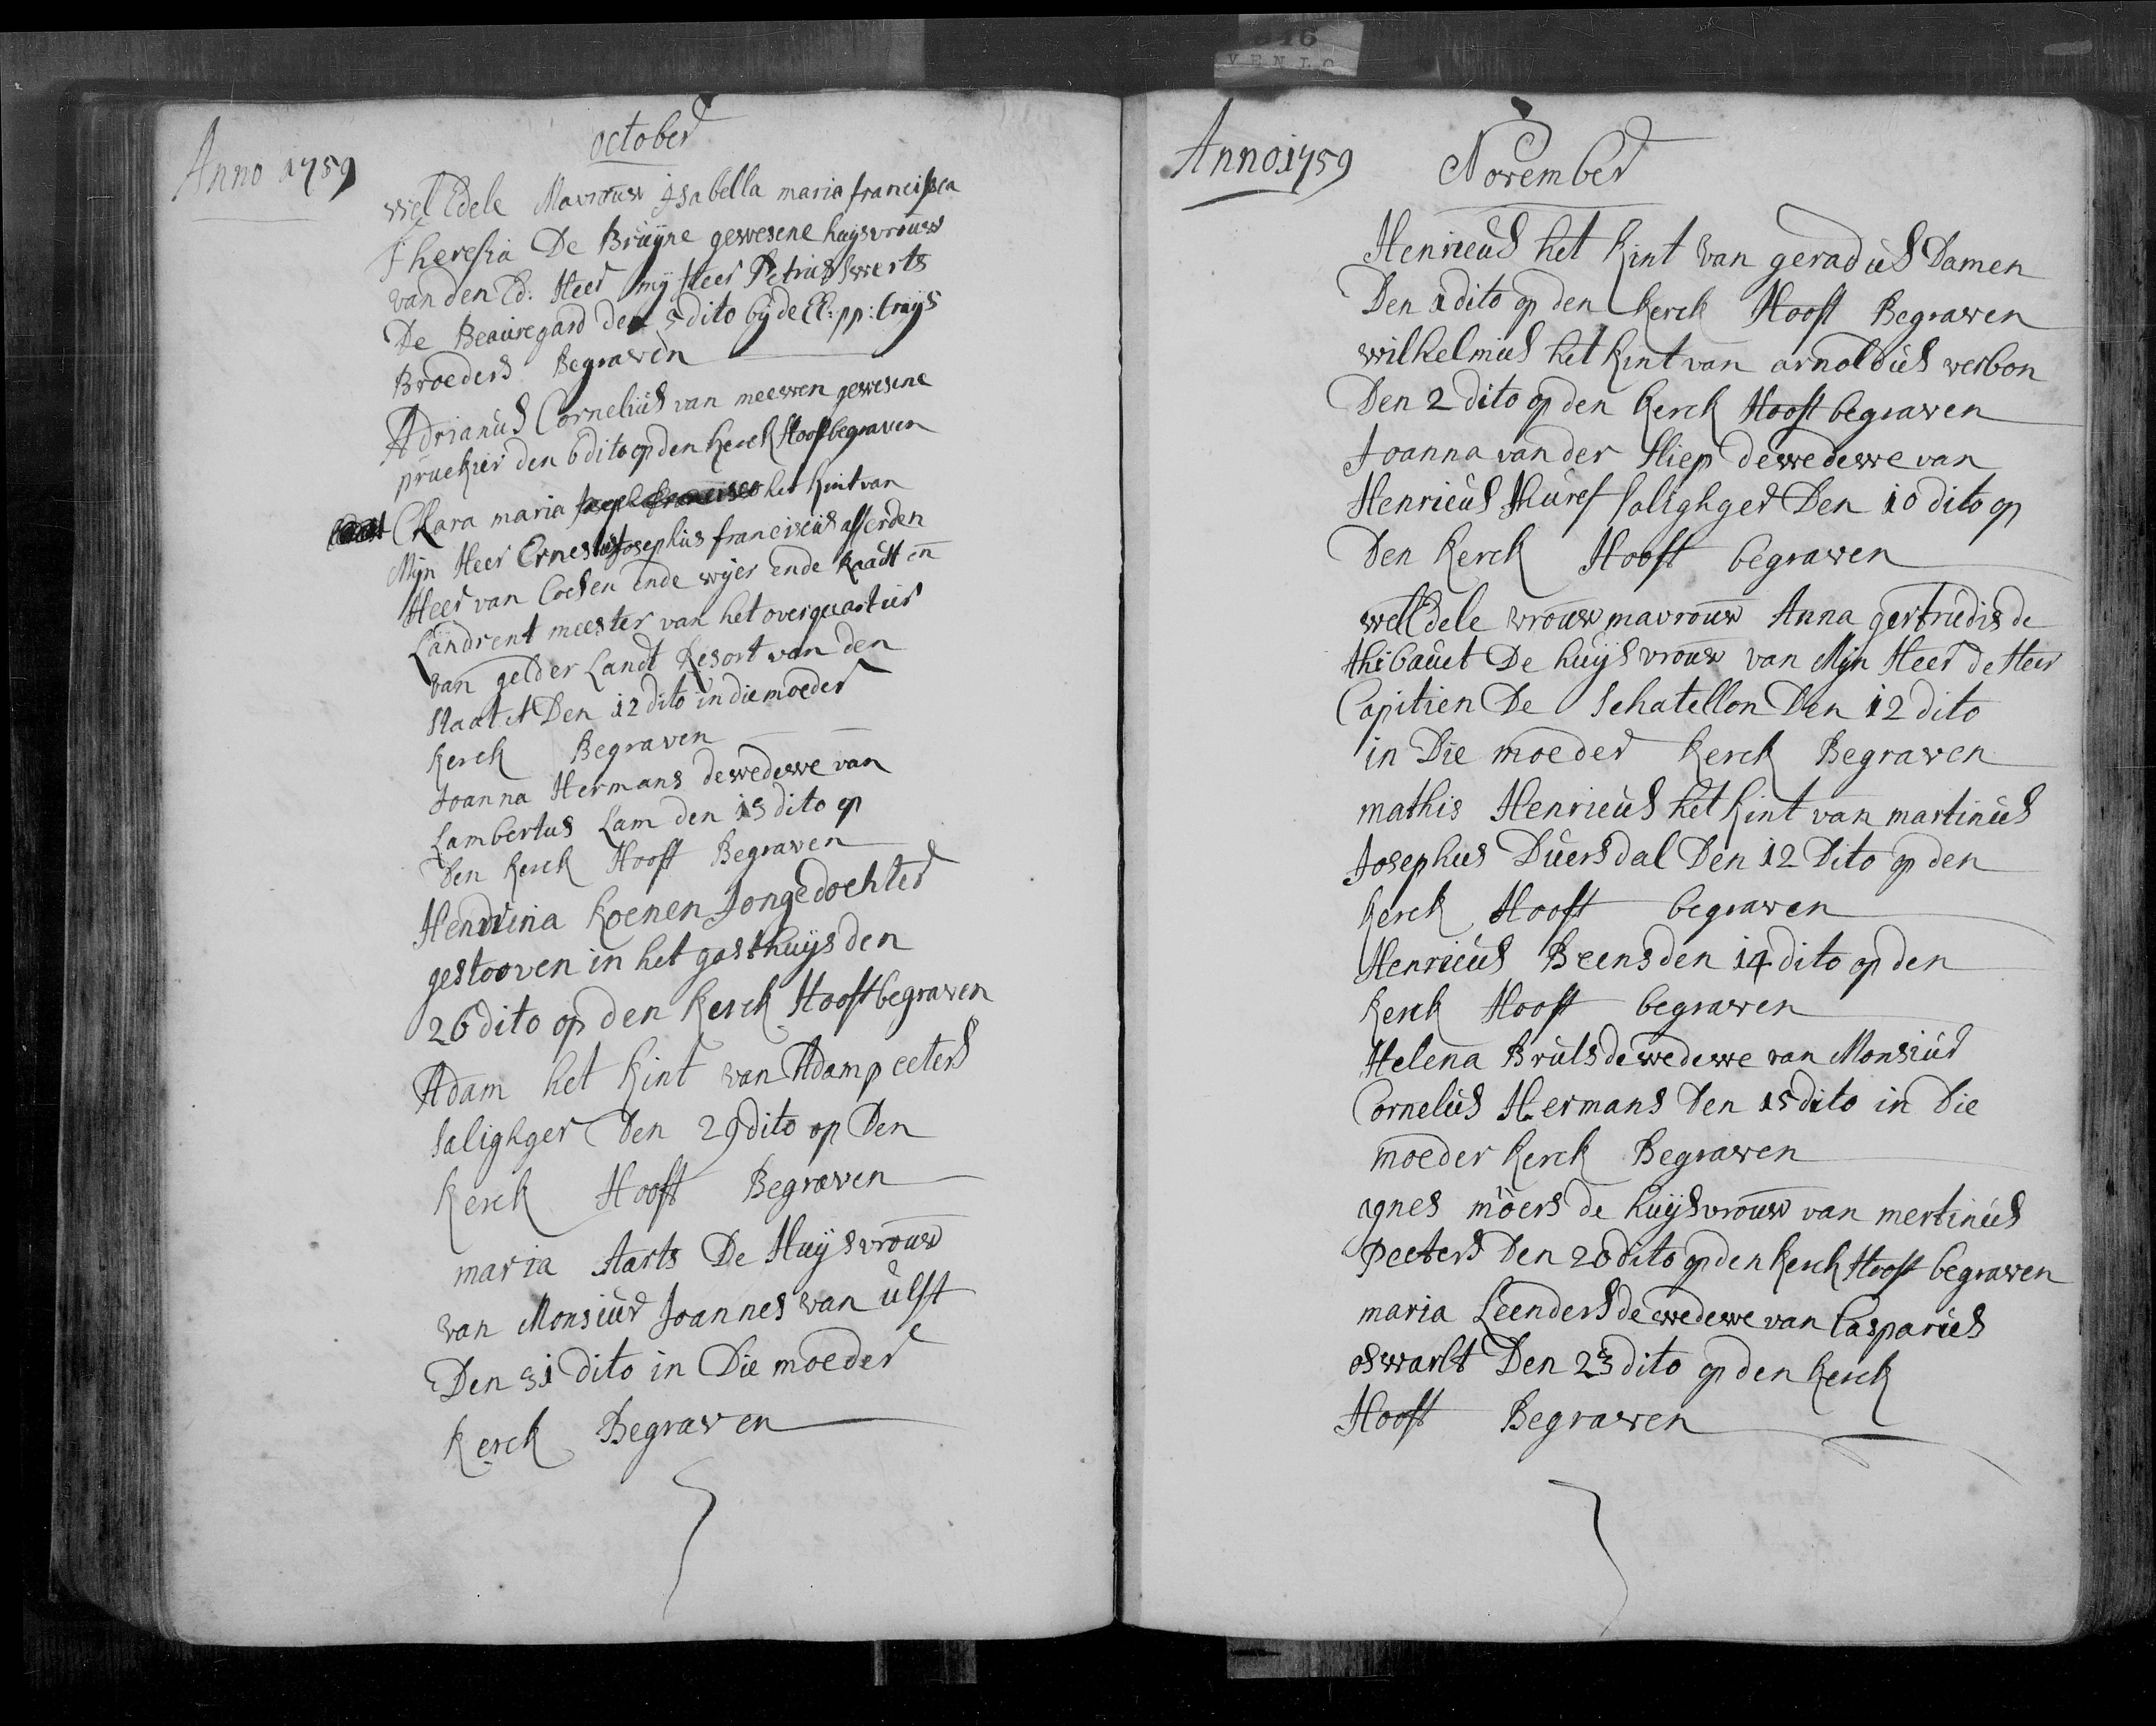 346
VENLO
Anno 1759
october
wel Edele Mavrouw Isabella maria francisca
Theresia De Bruijne gewesene huijsvrouw
van den Ed: Heer mij Heer Petrus Swerts
De Beauregard den 5 dito bij de EE: pp: Cruijs
Broeders Begraven
Adrianus Cornelius van meewen gewesene
pruekier den 6 dito op den Kerck Hooft begraven
Clara maria het Kint van
Mijn Heer Ernestus Josephus franciscus afferden
Heer van Coesen ende wijer ende Raadt en
Landrent meester van het overquartier
van gelder Landt Resort van den
Staat et Den 12 dito in die moeder
Kerck Begraven
Joanna Hermans de wedewe van
Lambertus Lam den 13 dito op
Den Kerck Hooft Begraven
Hendrina Koenen Jongedochter
gestooven in het gasthuijs den
26 dito op den Kerck Hooft begraven
Adam het Kint van Adam peeters
salighger Den 29 dito op Den
Kerck Hooft Begraven
maria Aarts De Huijsvrouw
van Monsiur Joannes van ulft
Den 31 dito in Die moeder
Kerck Begraven
Anno 1759
November
Henricus het Kint van geradus Damen
Den 1 dito op den Kerck Hooft Begraven
wilhelmus het Kint van arnoldus verbon
Den 2 dito op den Kerck Hooft begraven
Joanna van der Sliep de wedewe van
Henricus Huref salighger Den 10 dito op
Den Kerck Hooft begraven
well Edele vrouw mavrouw Anna gertrudis de
thibauet De huijsvrouw van Mijn Heer de Heer
Capitien De Schatellon Den 12 dito
in Die moeder Kerck Begraven
mathis Henricus het Kint van martinus
Josephus Duersdal Den 12 Dito op den
Kerck Hooft begraven
Henricus Beens den 14 dito op den
Kerck Hooft begraven
Helena Bruls de wedewe van Monsiur
Cornelus Hermans Den 15 dito in Die
moeder Kerck Begraven
agnes moers de huijsvrouw van mertinus
Peeters Den 20 dito op den Kerck Hooft begraven
maria Leenders de wedewe van Casparus
oswarlt Den 23 dito op den Kerck
Hooft Begraven